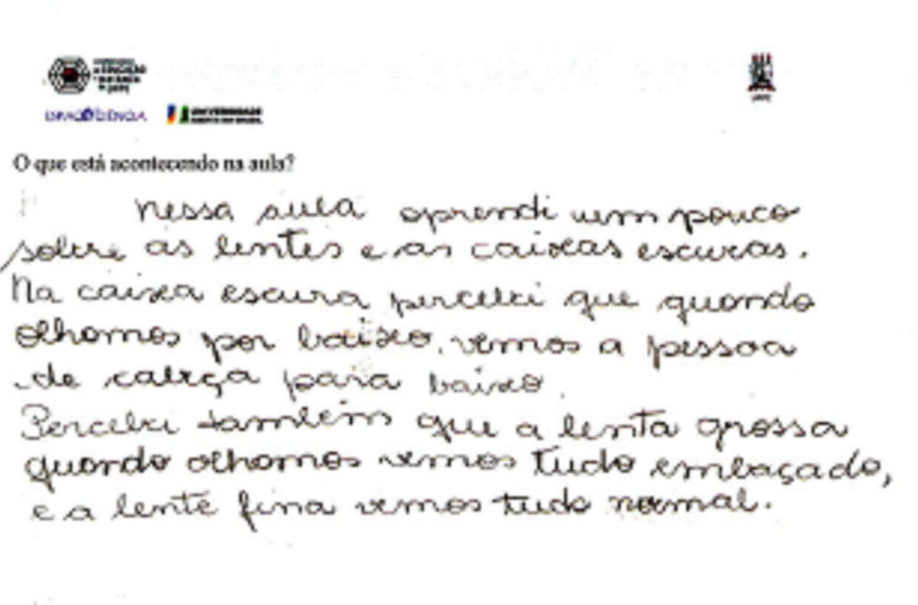 ESPAÇO CIÊNCIA
UNIVERSIDADE
O que está acontecendo na aula?
Nessa aula aprendi um pouco
sobre as lentes e as caixas escuras.
Na caixa escura percebi que quando
olhamos por baixo, vemos a pessoa
de cabeça para baixo.
Percebi também que a lenta grossa
quando olhamos vemos tudo embaçado,
e a lente fina vemos tudo normal.